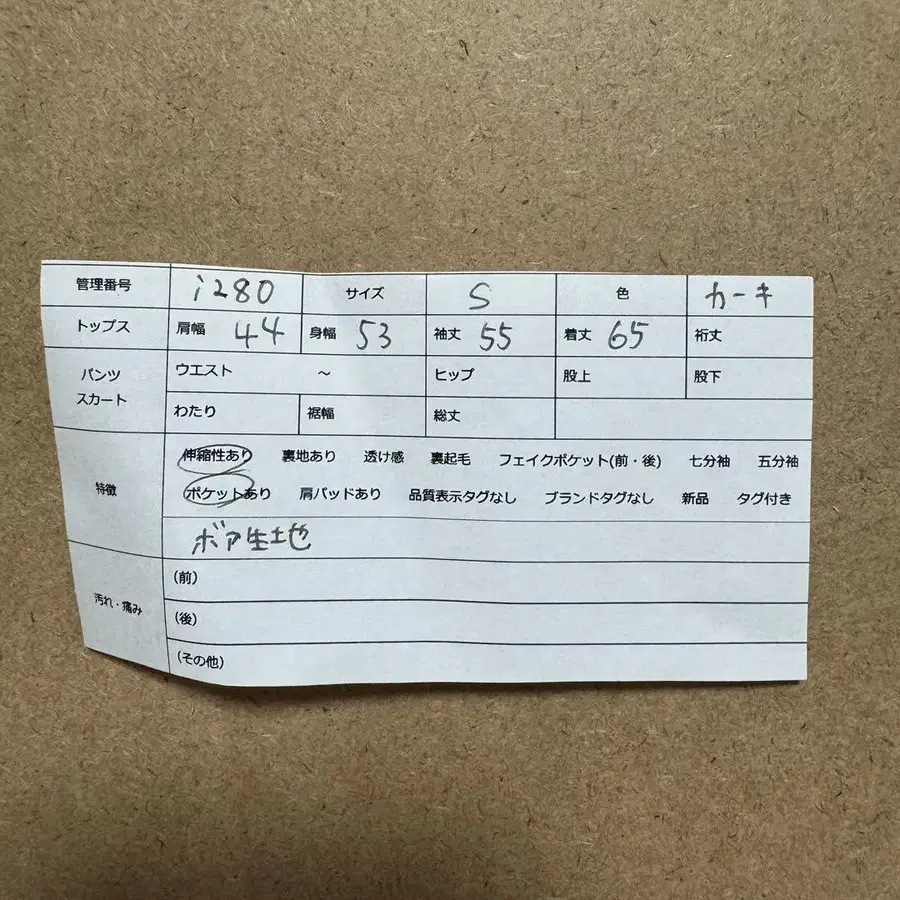 管理番号 i280 サイズ S 色 カーキ
トップス 肩幅 44 身幅 53 袖丈 55 着丈 65 裄丈
パンツ スカート ウエスト ～ ヒップ 股上 股下
わたり 裾幅 総丈
特徴 伸縮性あり 裏地あり 透け感 裏起毛 フェイクポケット(前・後) 七分袖 五分袖
ポケットあり 肩パッドあり 品質表示タグなし ブランドタグなし 新品 タグ付き
ボア生地
汚れ・痛み (前)
(後)
(その他)